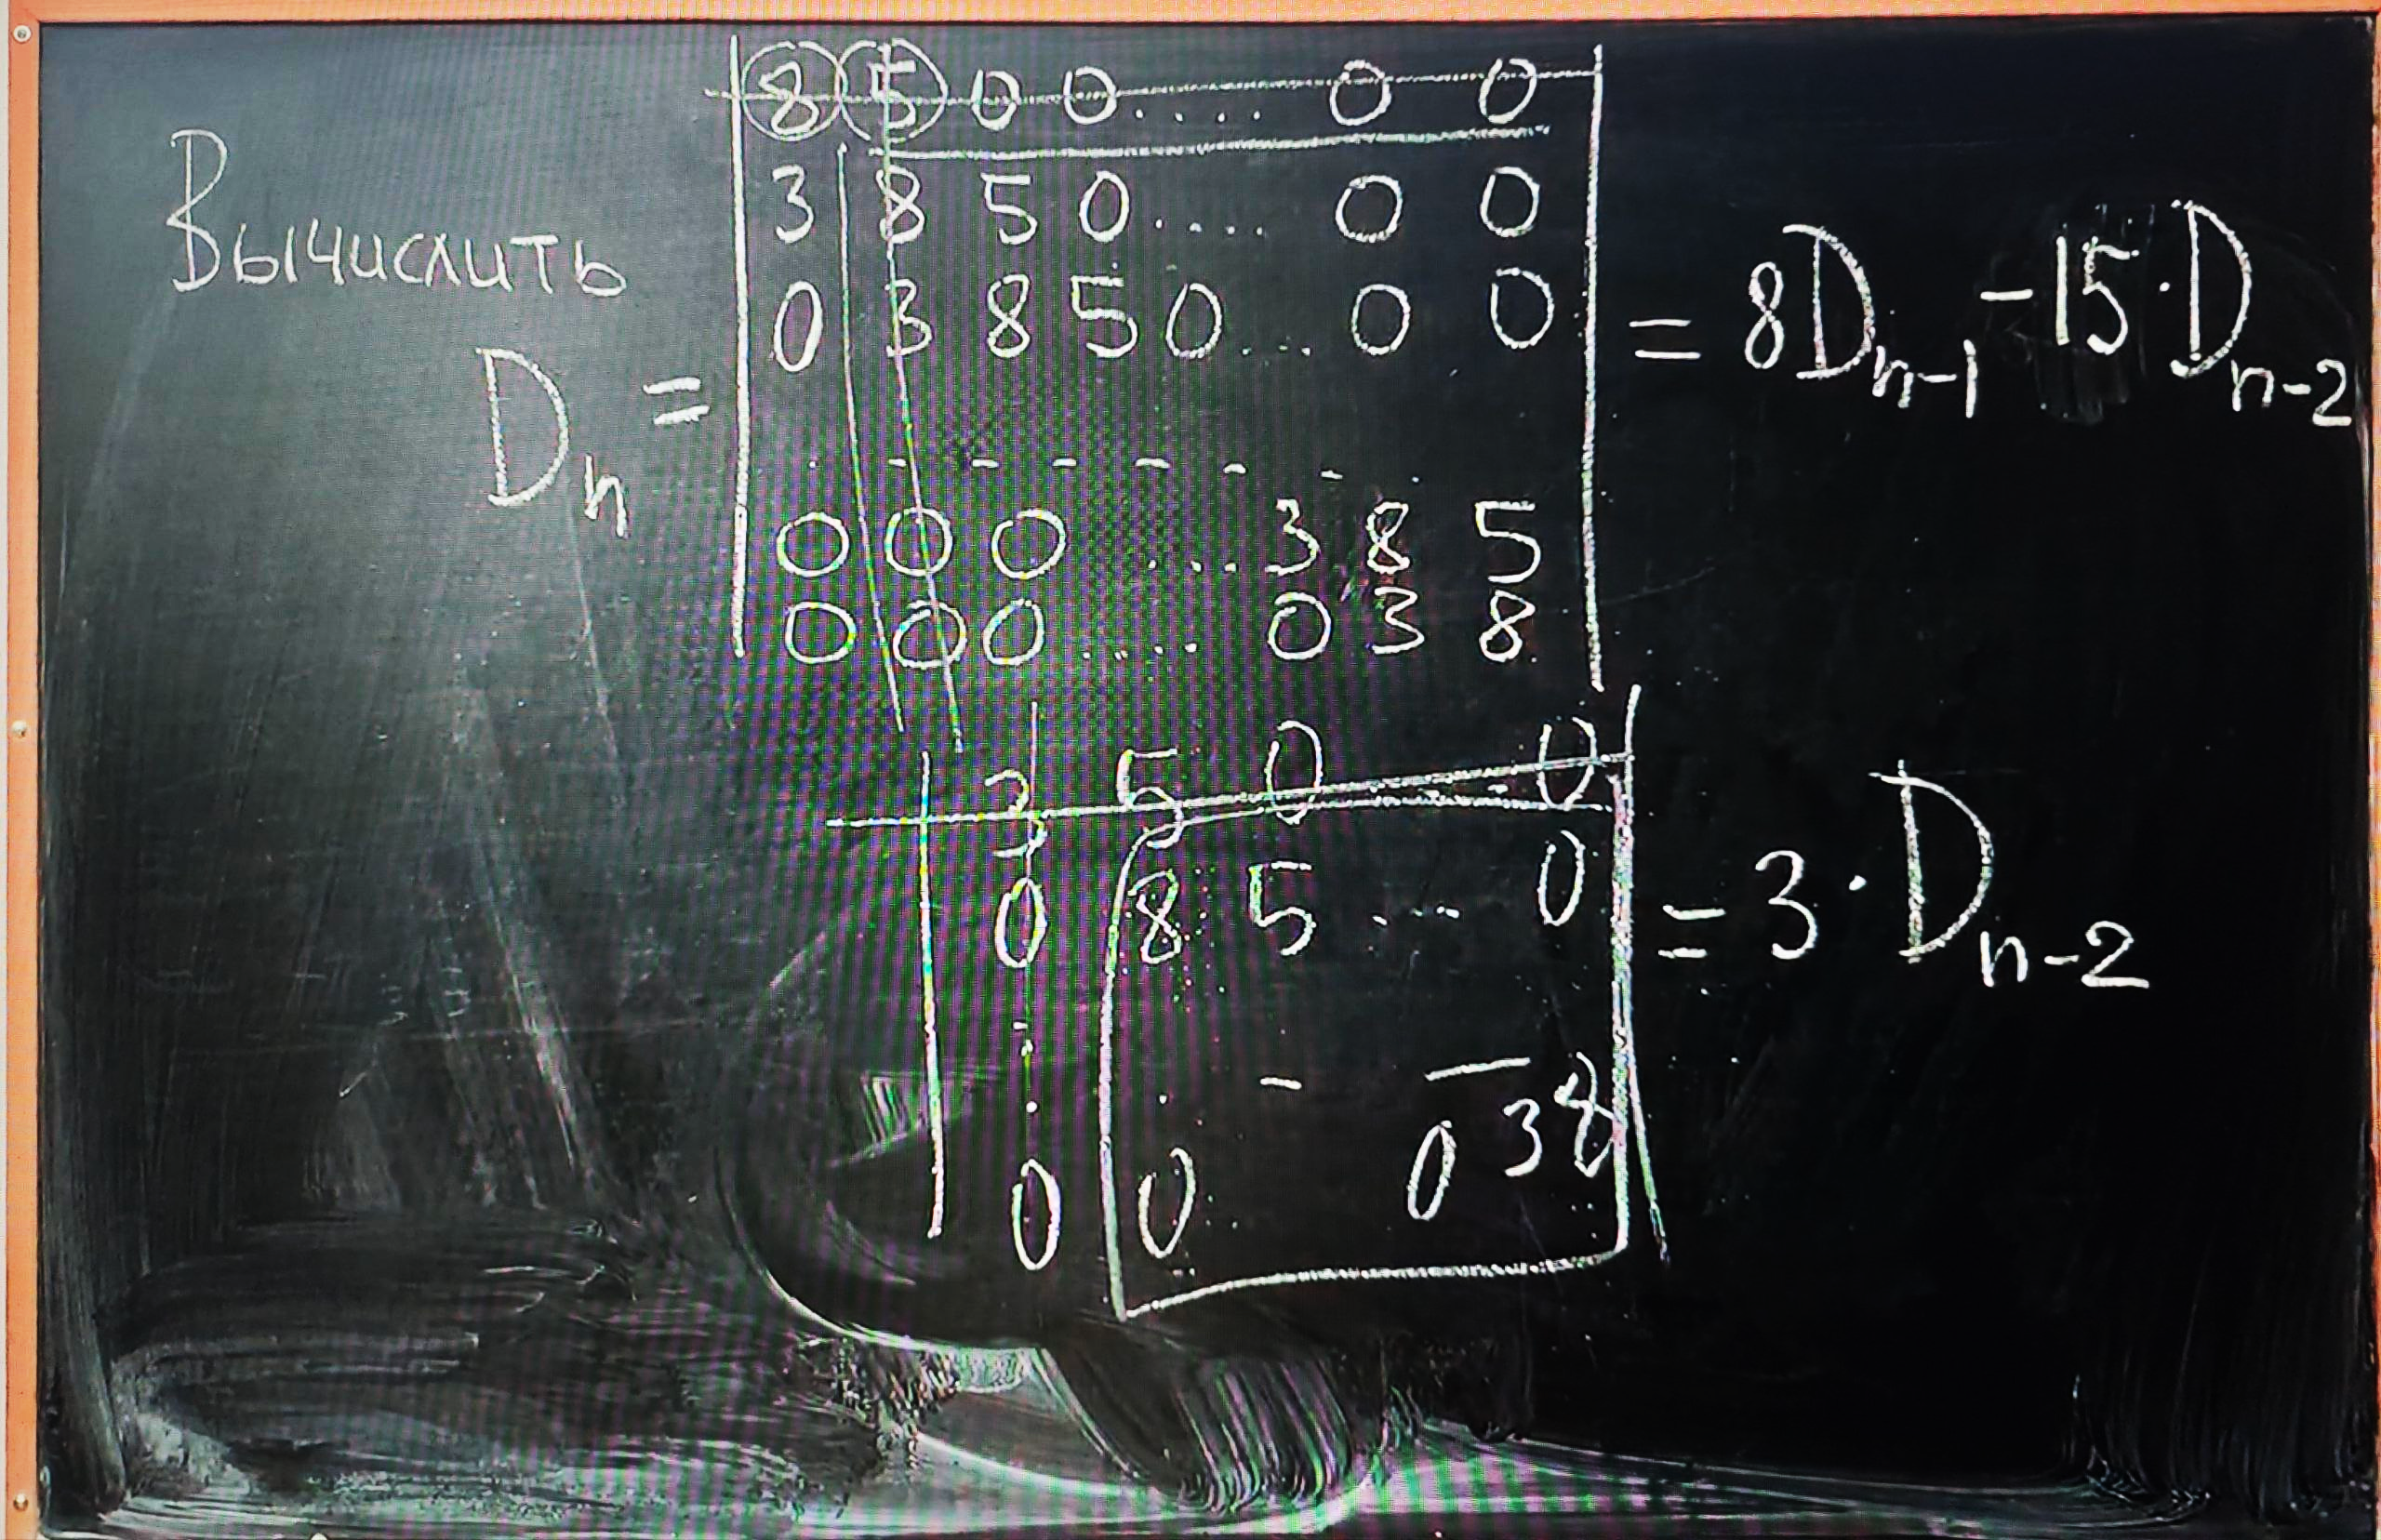 Вычислить
D_n =
| 8 5 0 0 .... 0 0 |
| 3 8 5 0 .... 0 0 |
| 0 3 8 5 0 ... 0 0 |
. - - - - - - .
| 0 0 0 ... 3 8 5 |
| 0 0 0 .... 0 3 8 |
= 8D_{n-1} - 15 · D_{n-2}
| 3 5 0 - 0 |
| 0 8 5 ... 0 |
| 0 0 .. 0 3 8 |
= 3 · D_{n-2}